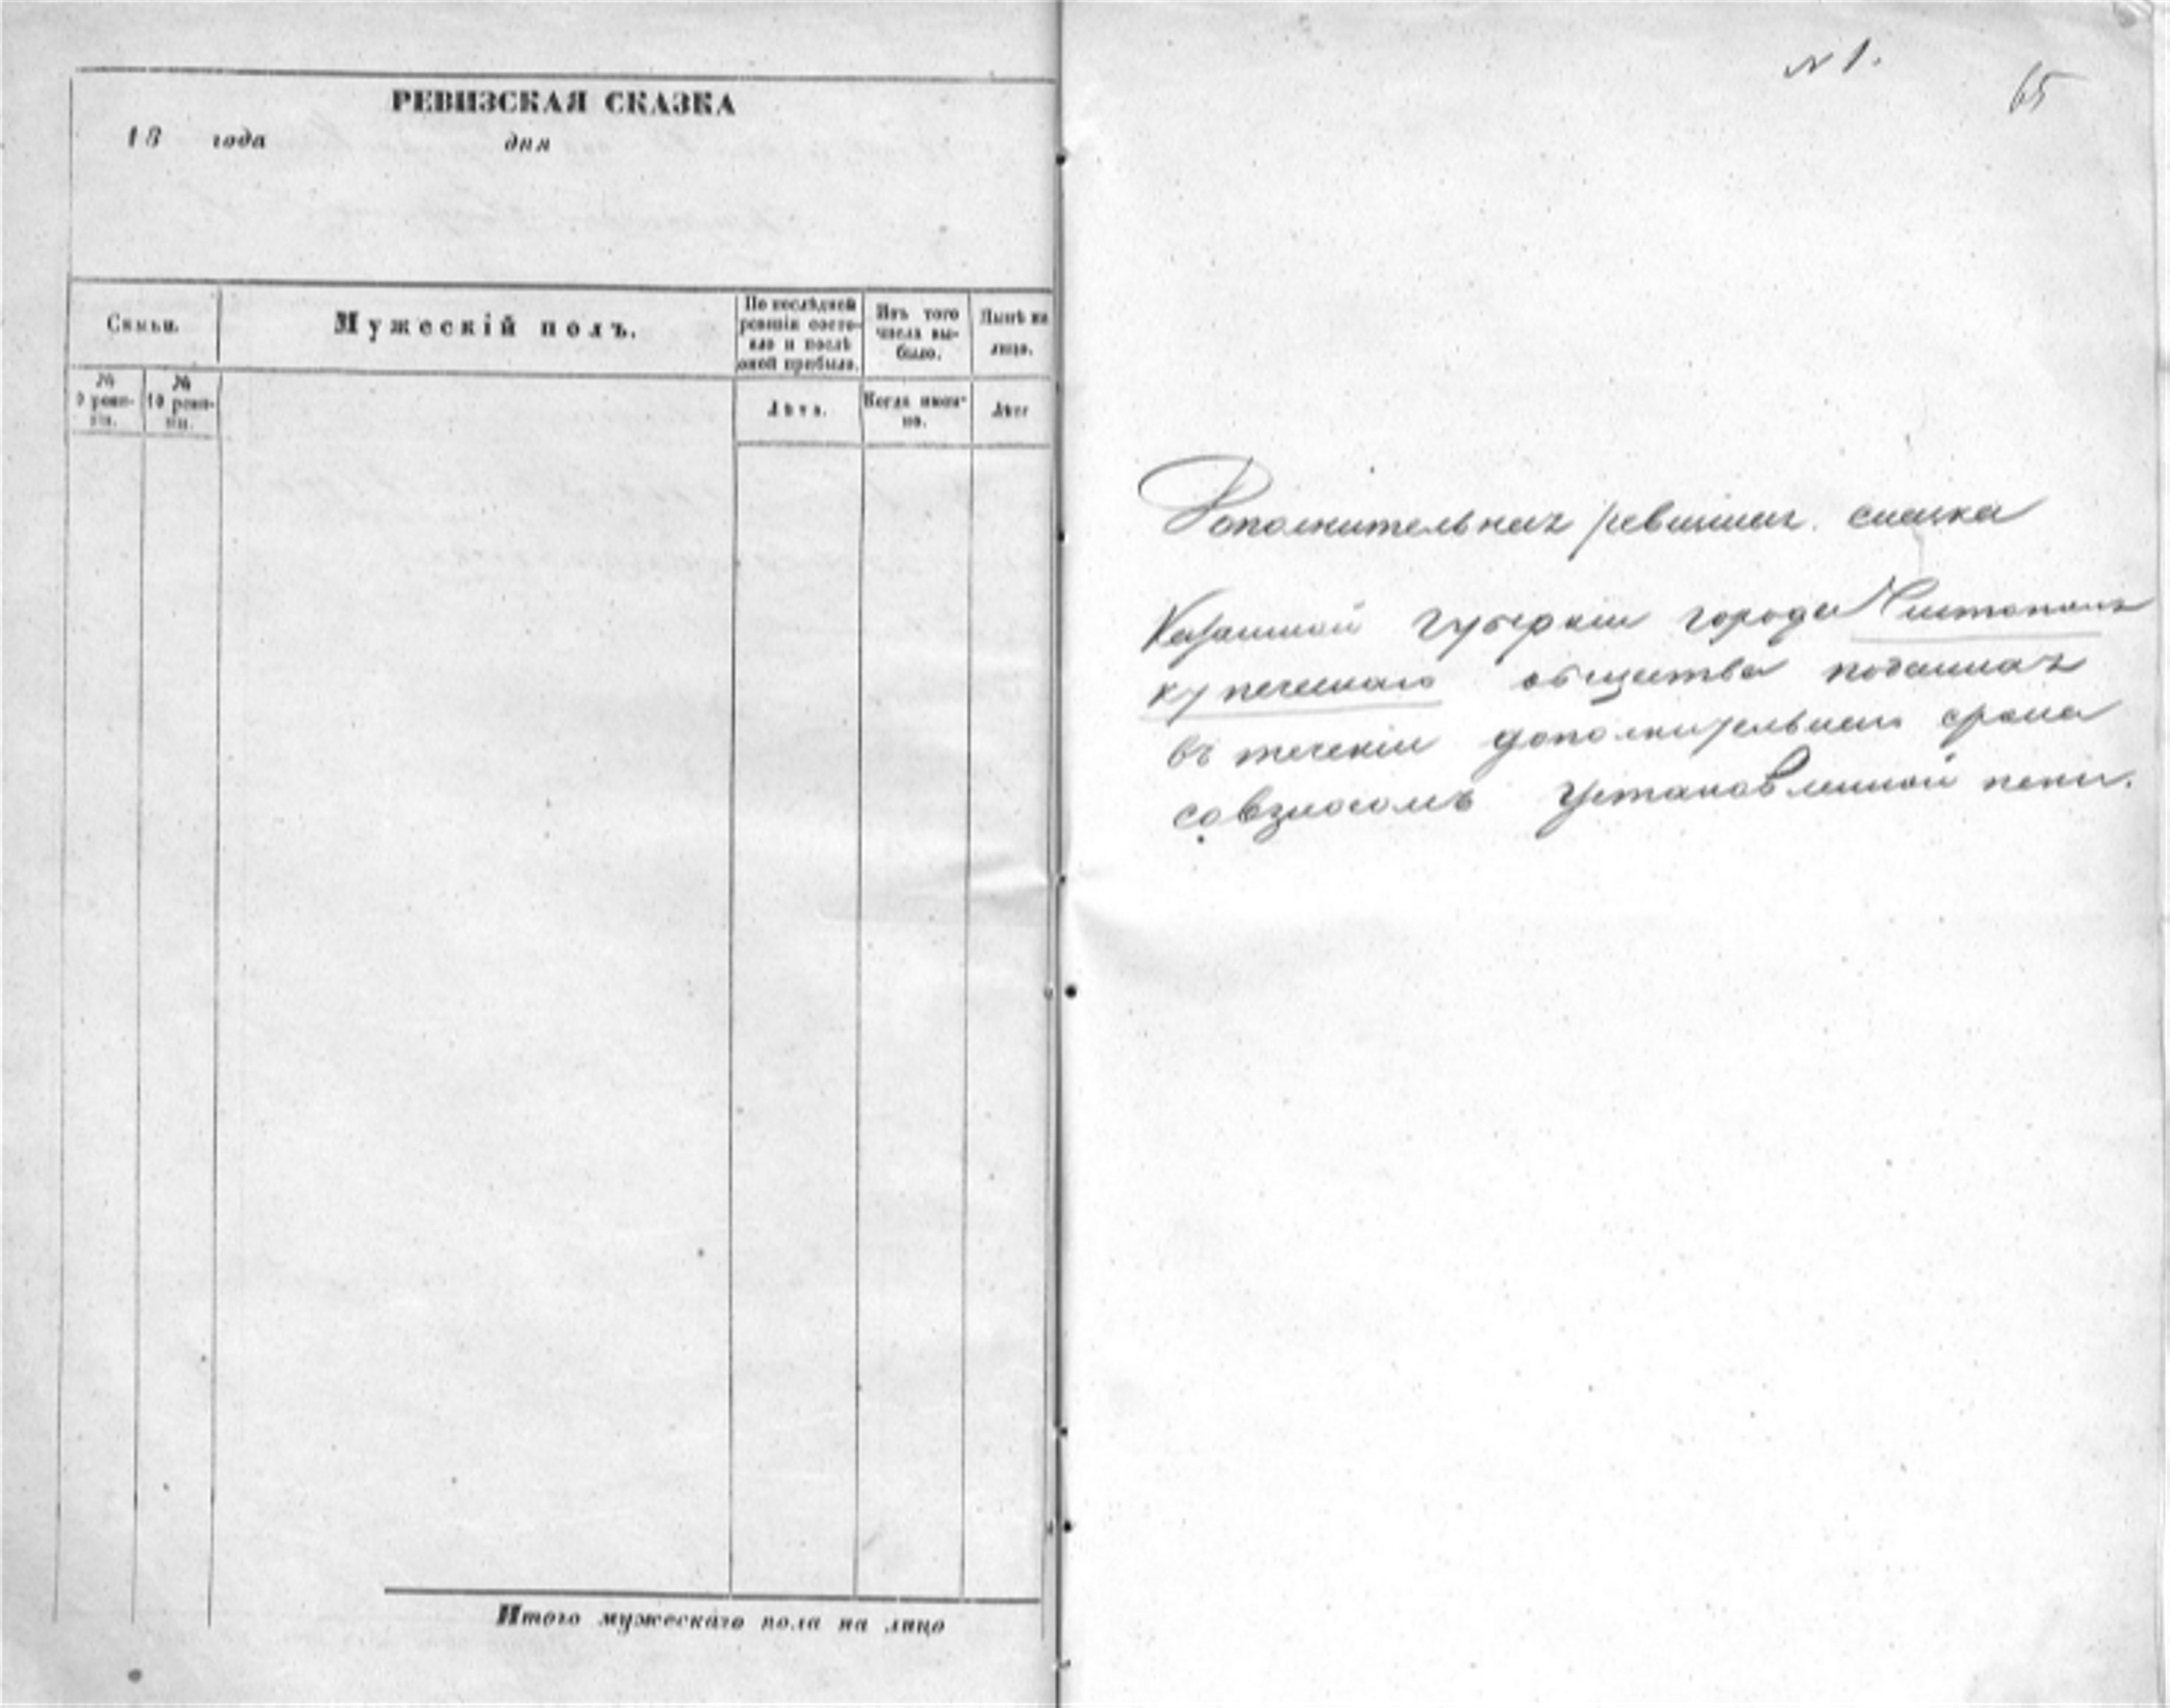 РЕВИЗСКАЯ СКАЗКА
18 года дня
Семьи.
Мужескій полъ.
По послѣдней
ревизіи состо-
яло и послѣ
оной прибыло.
Изъ того
числа вы-
было.
Нынѣ на
лицо.
№
9 реви-
зіи.
№
10 реви-
зіи.
Лѣта.
Когда имен-
но.
Лѣта
Итого мужескаго пола на лицо
№ 1.
65
Дополнительная ревизская сказка
Казанской губерніи города Чистополя
купеческаго общества поданная
въ теченіи дополнительнаго срока
со взносомъ установленной пени.